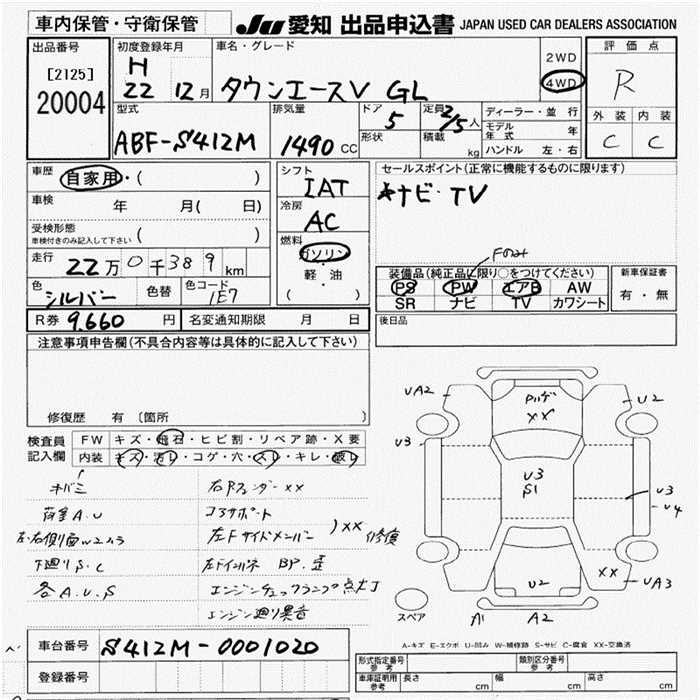 車内保管・守衛保管
JU 愛知 出品申込書 JAPAN USED CAR DEALERS ASSOCIATION
出品番号
[2125]
20004
初度登録年月
H
22 年 12 月
車名・グレード
タウンエースV GL
2WD
4WD
評価点
R
外装 内装
C C
型式
ABF-S412M
排気量
1490 CC
ドア
5
形状
定員
2/5 人
積載
kg
ディーラー・並行
モデル年式 年
ハンドル 左・右
車歴
自家用・( )
車検 年 月( 日)
受検形態
車検付きのみ記入して下さい ( )
走行
22万0千389 km
色
シルバー
色替
色コード
1E7
R券 9.660 円
名変通知期限 月 日
シフト
IAT
冷房
AC
燃料
ガソリン
・
軽・油
( )
セールスポイント(正常に機能するものに限ります)
ナビ・TV
Fのみ
装備品(純正品に限り○をつけてください)
PS PW エアB AW
SR ナビ TV カワシート
新車保証書
有・無
後日品
注意事項申告欄(不具合内容等は具体的に記入して下さい)
修復歴 有 〔箇所 〕
検査員
記入欄
FW キズ・飛石・ヒビ割・リペア跡・X要
内装 キズ・汚レ・コゲ・穴・スレ・キレ・破レ
キバミ
荷室A.U
左・右側面W2ヶ3
下廻りS.C
各A.U.S
右Fフェンダーxx
コアサポート
左Fサイドメンバー )xx 修復
左ドイルネ BP.歪
エンジンチェックランプ点灯
エンジン廻り異音
UA2
U3
U2
xx
U3
S1
U3
U4
U2
xx
UA3
A1
A2
スペア
A-キズ E-エクボ U-凹み W-補修跡 S-サビ C-腐食 XX-交換済
車台番号 S412M-0001020
登録番号
形式指定番号
参考
類別区分番号
参考
車庫証明用
参考
長さ cm 幅 cm 高さ cm